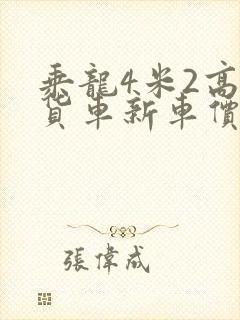 乘龍4米2高
貨車新車價
張偉成